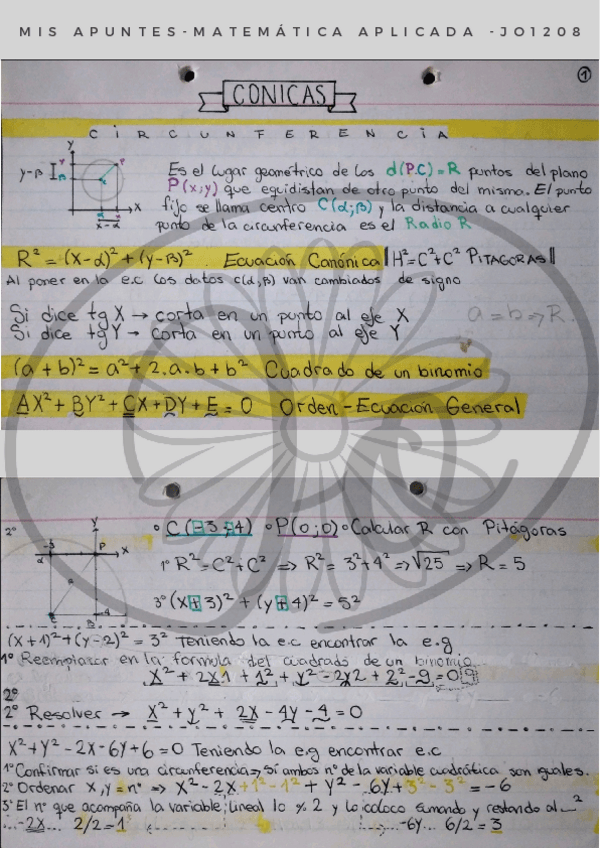 MIS APUNTES-MATEMÁTICA APLICADA -JO1208
1
CONICAS
CIRCUNFERENCIA
Es el lugar geométrico de los d(P.C)=R puntos del plano
P(x;y) que equidistan de otro punto del mismo. El punto
fijo se llama centro C(α;β) y la distancia a cualquier
punto de la circunferencia es el Radio R
y-β
y
x
x-α
R² = (x-α)² + (y-β)² Ecuación Canónica ‖H²=C²+C² PITAGORAS‖
Al poner en la e.c los datos c(α,β) van cambiados de signo
Si dice tg X → corta en un punto al eje X
Si dice tg Y → corta en un punto al eje Y
a=b⇒R
(a+b)² = a² + 2.a.b + b² Cuadrado de un binomio
AX² + BY² + CX + DY + E = 0 Orden - Ecuación General
2°
Y
X
P
-3
α
-4
° C(-3;-4) ° P(0;0) ° Calcular R con Pitágoras
1° R² = C² + C² ⇒ R² = 3² + 4² ⇒ √25 ⇒ R = 5
3° (x+3)² + (y+4)² = 5²
(x+1)² + (y-2)² = 3² Teniendo la e.c encontrar la e.g
1° Reemplazar en la formula del cuadrado de un binomio
X² + 2X1 + 1² + y² - 2y2 + 2² - 9 = 0
2°
2° Resolver → X² + y² + 2X - 4y - 4 = 0
X² + Y² - 2X - 6Y + 6 = 0 Teniendo la e.g encontrar e.c
1° Confirmar si es una circunferencia ⇒ si ambos n° de la variable cuadrática son iguales.
2° Ordenar x, y = n° ⇒ X² - 2X + 1² - 1² + Y² - 6Y + 3² - 3² = -6
3° El n° que acompaña la variable lineal lo % 2 y lo coloco sumando y restando al ²
...-2X... 2/2 = 1 -6Y... 6/2 = 3